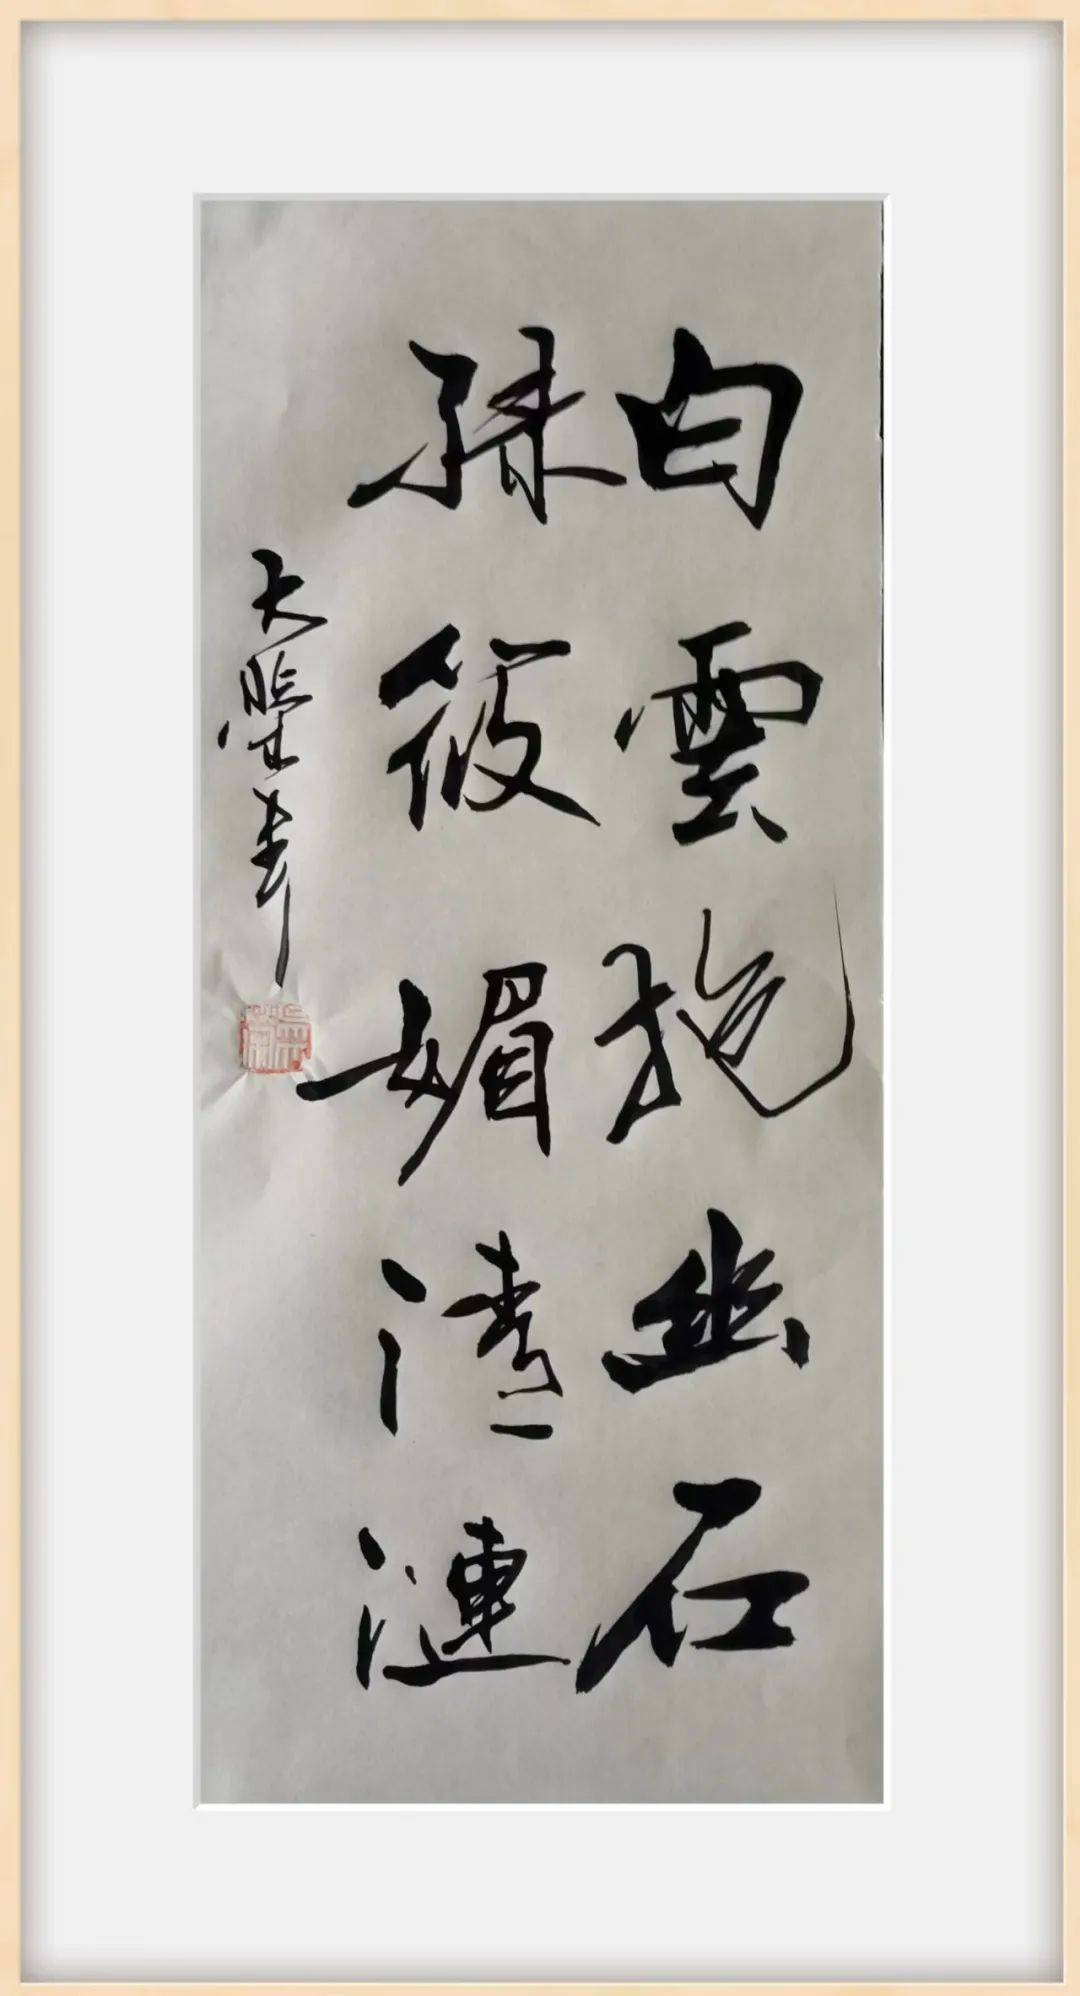 白雲抱幽石
綠筱媚清漣
大